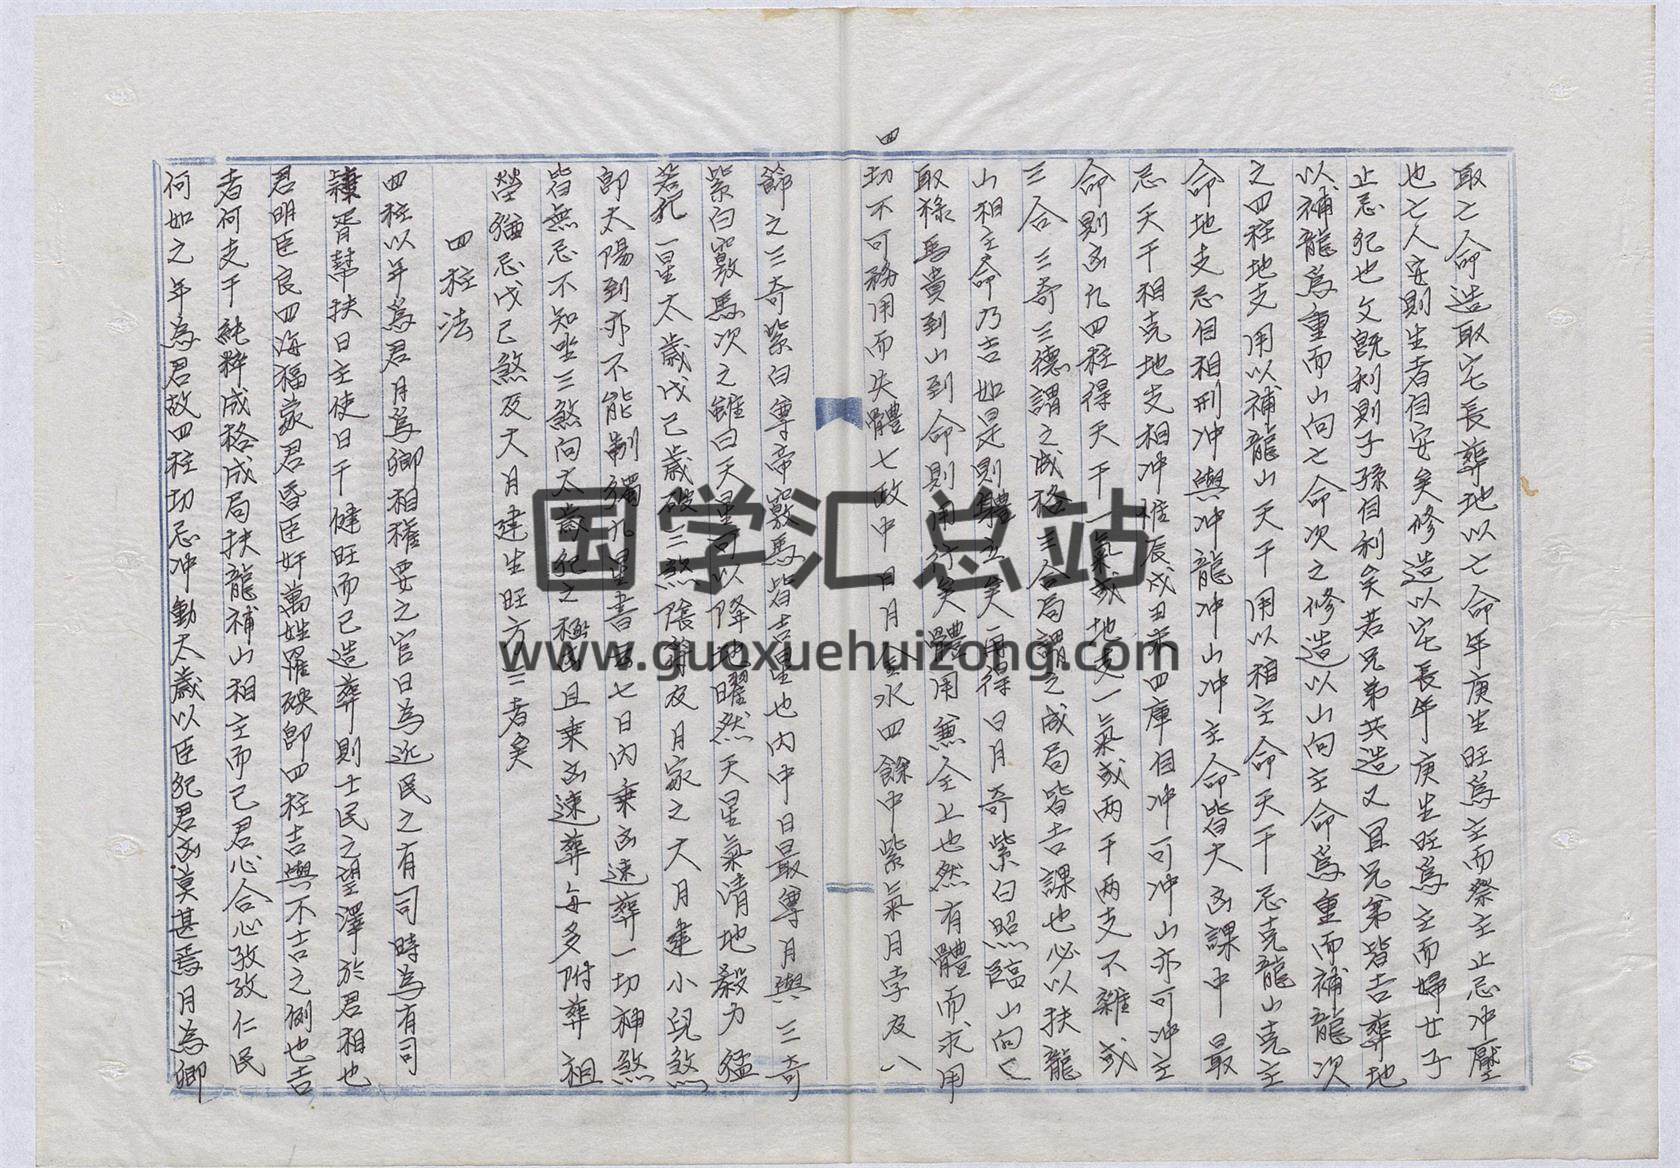 四
取亡命造取宅長葬地以亡命年庚生旺為主而祭主止忌冲壓
也亡人安則生者自安矣修造以宅長年庚生旺為主而婦女子
止忌犯也父既利則子孫自利矣若兄弟共造又宜兄弟皆吉葬地
以補龍為重而山向亡命次之修造以山向主命為重而補龍次
之四柱地支用以補龍山天干用以相主命天干忌克龍山克主
命地支忌自相刑冲與冲龍冲山冲主命皆大凶課中最
忌天干相克地支相冲惟辰戌丑未四庫自冲可冲山亦可冲主
命則凶凡四柱得天干一氣或地支一氣或两干两支不雜或
三合三奇三德謂之成格三合局謂之成局皆吉課也必以扶龍
山相主命乃吉如是則體立矣再得日月奇紫白照臨山向
取祿馬貴到山到命則用行矣體用兼全上也然有體而求用
切不可務用而失體七政中日月金水四餘中紫氣月孛及八
節之三奇紫白尊帝竅馬皆吉星也内中日最尊月與三奇
紫白竅馬次之雖曰天星可以降地曜然天星氣清地殺力猛
若犯一星太歲戊己歲破三煞陰府及月家之大月建小兒煞
即太陽到亦不能制獨九星書
七日内乘凶速葬一切神煞
皆無忌不知坐三煞向太歲犯之極凶且乘凶速葬每多附葬祖
塋猶忌戊己煞及大月建生旺方三者矣
四柱法
四柱以年為君月為卿相權要之官日為近民之有司時為有司
隸胥幫扶日主使日干健旺而已造葬則士民之望澤於君相也
君明臣良四海福蒙君昏臣奸萬姓罹殃即四柱吉與不吉之例也吉
者何支干純粹成格成局扶龍補山相主而已君心合心孜孜仁民
何如之年為君故四柱切忌冲動太歲以臣犯君凶莫甚焉月為卿
国学汇总站
www.guoxuehuizong.com